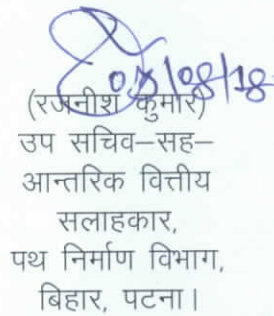 07/08/18
(रजनीश कुमार)
उप सचिव–सह–
आन्तरिक वित्तीय
सलाहकार,
पथ निर्माण विभाग,
बिहार, पटना।